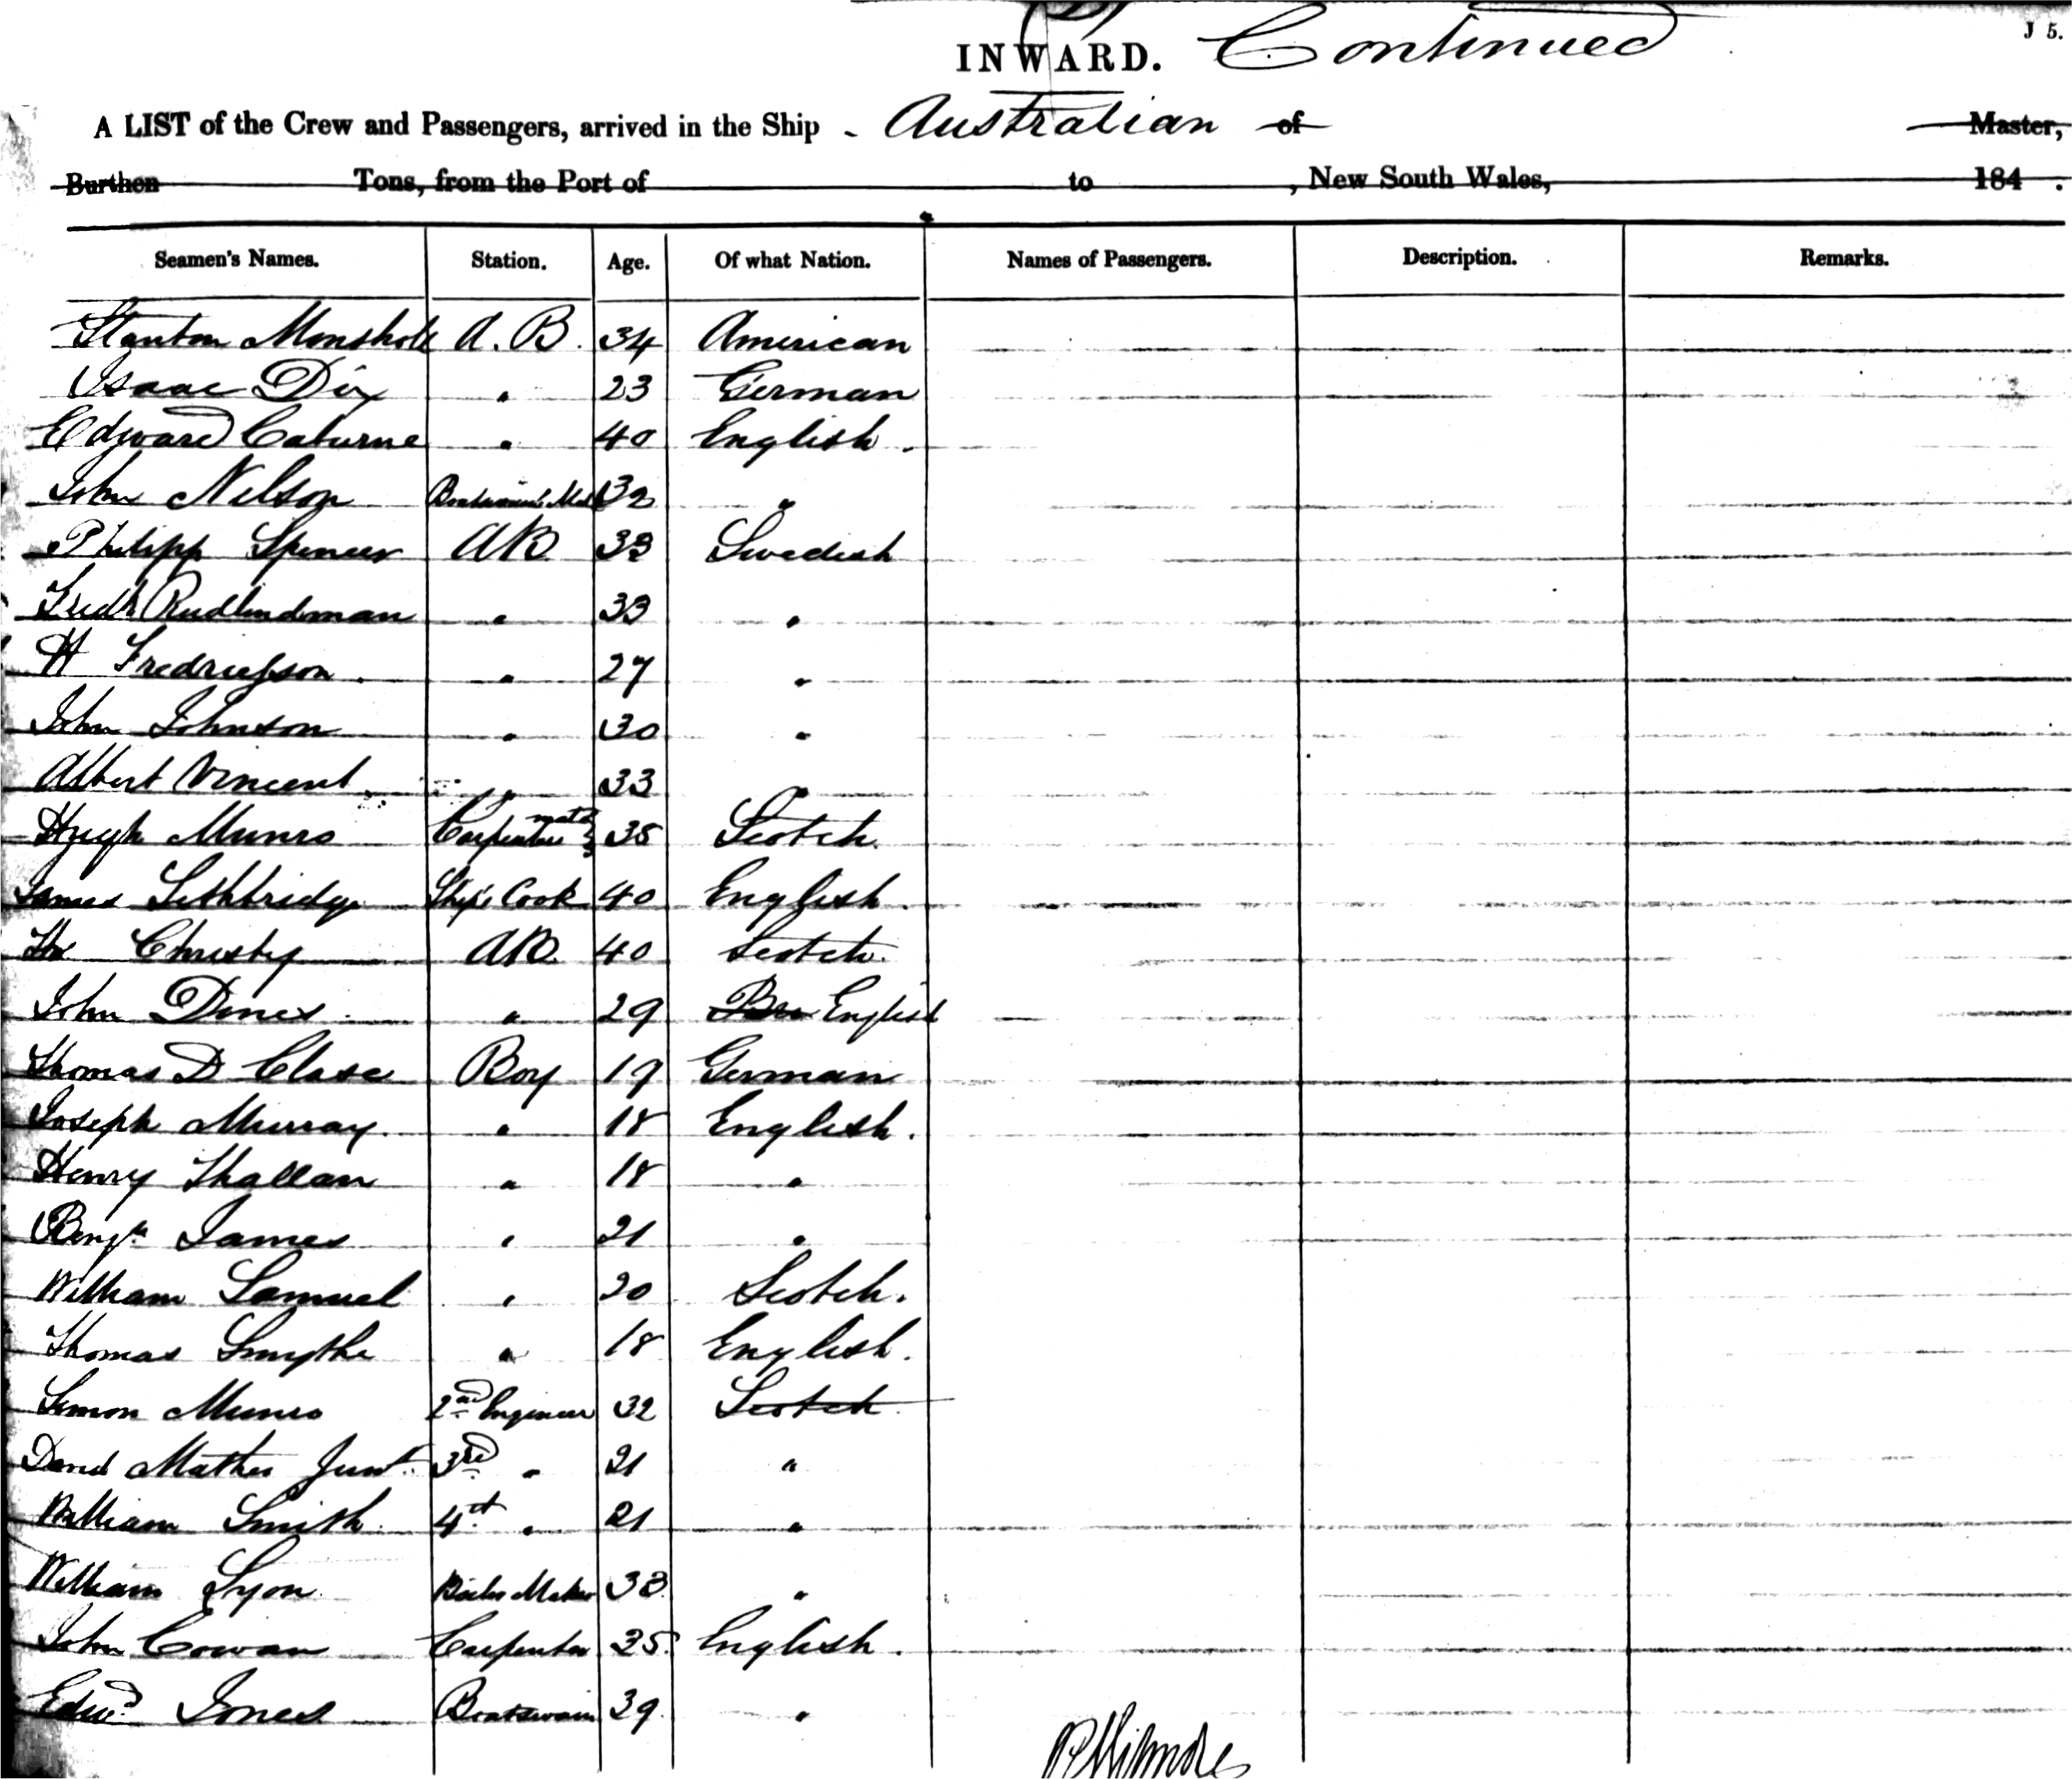 J 5.
INWARD. Continued
A LIST of the Crew and Passengers, arrived in the Ship - Australian of Master,
Burthen Tons, from the Port of to , New South Wales, 184 .
Seamen's Names. Station. Age. Of what Nation. Names of Passengers. Description. Remarks.
Stanton A.B. 34 American
Isaac Dix " 23 German
Edward Caburne " 40 English.
John Nelson Boatswain's Mate 32 "
Philipp Spencer AB 33 Swedish
Fredk Rudlindman " 33 "
H Fredricksson. " 27 "
John Johnson " 30 "
Albert Vincent " 33 "
Hugh Munro Carpenter mate 35 Scotch.
James Lethbridge Ship's Cook 40 English.
Christy AB 40 Scotch.
John Dines " 29 Bri English
Thomas D Clase Boy 19 German
Joseph Murray. " 18 English.
Henry Thallan " 18 "
Benjn James " 21 "
William Samuel " 20 Scotch.
Thomas Smythe " 18 English.
Simon Munro 2nd Engineer 32 Scotch
David Mather Junr. 3rd " 21 "
William Smith 4th " 21 "
William Lyon Boiler Maker 33 "
John Cowan Carpenter 35. English.
Edwd Jones Boatswain 39. "